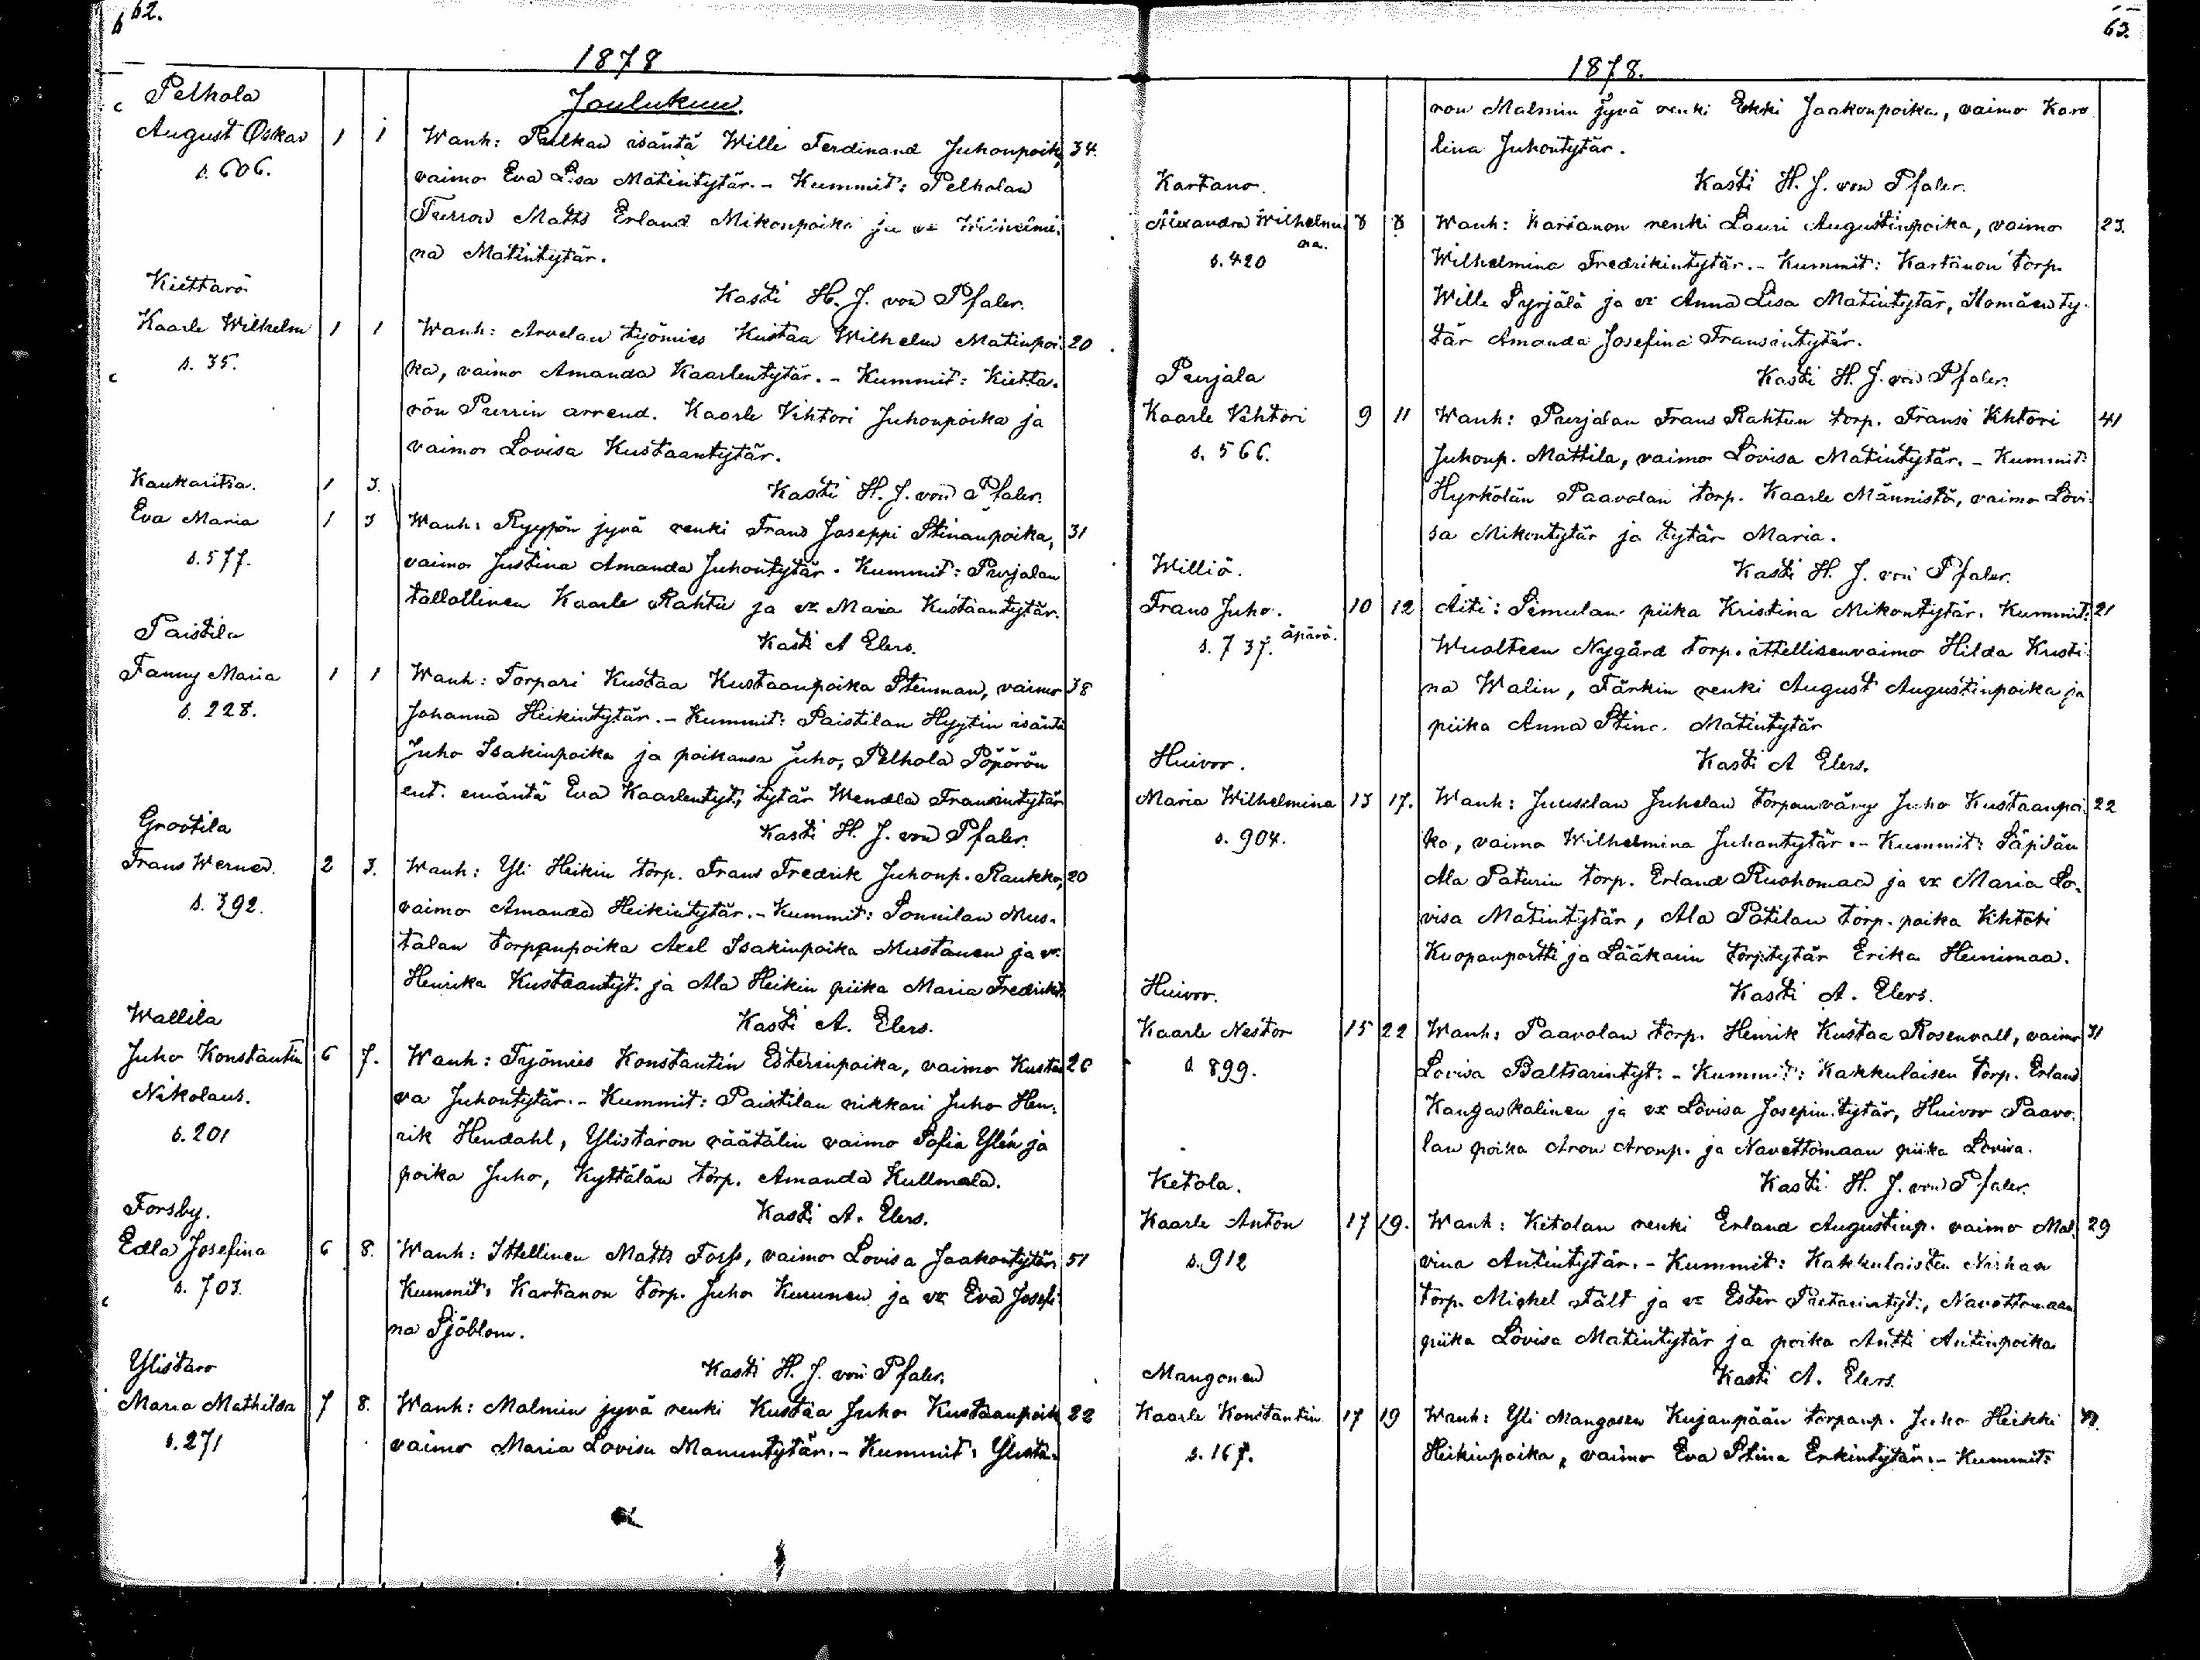 62.
1878
Pelhola
Joulukuu.
August Oskar 1 1 Wanh: Pulkan isäntä Wille Ferdinand Juhonpoika, 34.
s. 606.
vaimo Eva Lisa Matintytär. - Kummit: Pelholan
Matts Erland Mikonpoika ja vz
na Matintytär.
Kasti H. J. von Pfaler.
Kiettarö
Kaarle Wilhelm 1 1 Wanh: Arvelan työmies Kustaa Wilhelm Matinpoi- 20
s. 35.
ka, vaimo Amanda Kaarlentytär. - Kummit: Kietta-
rön Purrin arrend. Kaarle Vihtori Juhonpoika ja
vaimo Lovisa Kustaantytär.
Kasti H. J. von Pfaler.
Kaukaritsa. 1 3.
Eva Maria 1 3 Wanh: Ryypön jyvä renki Frans Joseppi Stinanpoika, 31
s. 577.
vaimo Justina Amanda Juhontytär. Kummit: Purjalan
tallollinen Kaarle Rahtu ja vz Maria Kustaantytär.
Kasti A Elers.
Paistila
Fanny Maria 1 1 Wanh: Torpari Kustaa Kustaanpoika Stenman, vaimo 38
s. 228.
Johanna Heikintytär. - Kummit: Paistilan Hyytin isäntä
Juho Isakinpoika ja poikansa Juho, Pelhola Pöpörön
ent. emäntä Eva Kaarlentyt., tytär Wendla Fransintytär
Kasti H. J. von Pfaler.
Grootila
Frans Werner. 2 3. Wanh: Yli Heikin torp. Frans Fredrik Juhonp. Raukko, 20
s. 392.
vaimo Amanda Heikintytär. - Kummit: Sonnilan Mus-
talan torpanpoika Axel Isakinpoika Mustanen ja v.
Henrika Kustaantyt. ja Ala Heikin piika Maria Fredrikt.
Kasti A. Elers.
Wallila
Juho Konstantin 6 7. Wanh: Työmies Konstantin Esterinpoika, vaimo Kusta 26
Nikolaus.
va Juhontytär. - Kummit: Paistilan nikkari Juho Hen-
s. 201
rik Hendahl, Ylistaron räätälin vaimo Sofia Ylén ja
poika Juho, Kyttälän torp. Amanda Kullmala.
Kasti A. Elers.
Forsby.
Edla Josefina 6 8. Wanh: Itellinen Matts Forss, vaimo Lovisa Jaakontytär. 51
s. 703.
Kummit: Kartanon torp. Juho Kurunen ja vz Eva Josefi-
na Sjöblom.
Kasti H. J. von Pfaler.
Ylistaro
Maria Mathilda 7 8. Wanh: Malmin jyvä renki Kustaa Juho Kustaanpoik 22
s. 271
vaimo Maria Lovisa Manuntytär. - Kummit: Ylista-
63.
1878.
ron Malmin jyvä renki Erkki Jaakonpoika, vaimo Karo
lina Juhontytär.
Kasti H. J. von Pfaler.
Kartano.
Alexandra Wilhelmi 8 8 Wanh: Kartanon renki Lauri Augustinpoika, vaimo 23.
na.
s. 420
Wilhelmina Fredrikintytär. - Kummit: Kartanon torp.
Wille Syrjälä ja vz Anna Lisa Matintytär, Komäen ty-
tär Amanda Josefina Fransintytär.
Kasti H. J. von Pfaler.
Purjala
Kaarle Vihtori 9 11 Wanh: Purjalan Frans Rahtun torp. Fransi Vihtori 41
s. 566.
Juhonp. Mattila, vaimo Lovisa Matintytär. - Kummit:
Hyrkölän Paavolan torp. Kaarle Männistö, vaimo Lovi-
sa Mikontytär ja tytär Maria.
Kasti H. J. von Pfaler.
Williö.
Frans Juho. 10 12 Äiti: Simulan piika Kristina Mikontytär. Kummit: 21
s. 737. äpärä.
Wualteen Nygård torp. ittellisenvaimo Hilda Kristi
na Walin, Färkin renki August Augustinpoika ja
piika Anna Stina Matintytär
Kasti A Elers.
Huivoo.
Maria Wilhelmina 13 17. Wanh: Juuselan Juhelan torpanvävy Juho Kustaanpoi- 22
s. 904.
ka, vaimo Wilhelmina Juhantytär. - Kummit: Säpilän
Ala Paturin torp. Erland Ruohomaa ja vz Maria Lo-
visa Matintytär, Ala Patilan torp. poika Vihtori
Kuopanportti ja Lääkärin torp. tytär Erika Heinimaa.
Kasti A. Elers.
Huivoo.
Kaarle Nestor 15 22 Wanh: Paavolan torp. Henrik Kustaa Rosenvall, vaimo 31
s. 899.
Lovisa Baltsarintyt. - Kummit: Kakkulaisen torp. Erland
Kangaskalinen ja vz Lovisa Josepintytär, Huivoo Paavo-
lan poika Aron Aronp. ja Navettomaan piika Lovisa.
Kasti H. J. von Pfaler.
Ketola.
Kaarle Anton 17 19. Wanh: Ketolan renki Erland Augustinp. vaimo Mal- 29
s. 912
vina Antintytär. - Kummit: Kakkulaisten
torp. Mickel Stält ja vz Ester Pietarintyt., Navettomaan
piika Lovisa Matintytär ja poika Antti Antinpoika
Kasti A. Elers.
Mangonen
Kaarle Konstantin 17 19 Wanh: Yli Mangosen Kujanpään torpanp. Juho Heikki
s. 167.
Heikinpoika, vaimo Eva Stina Erkintytär. - Kummit: